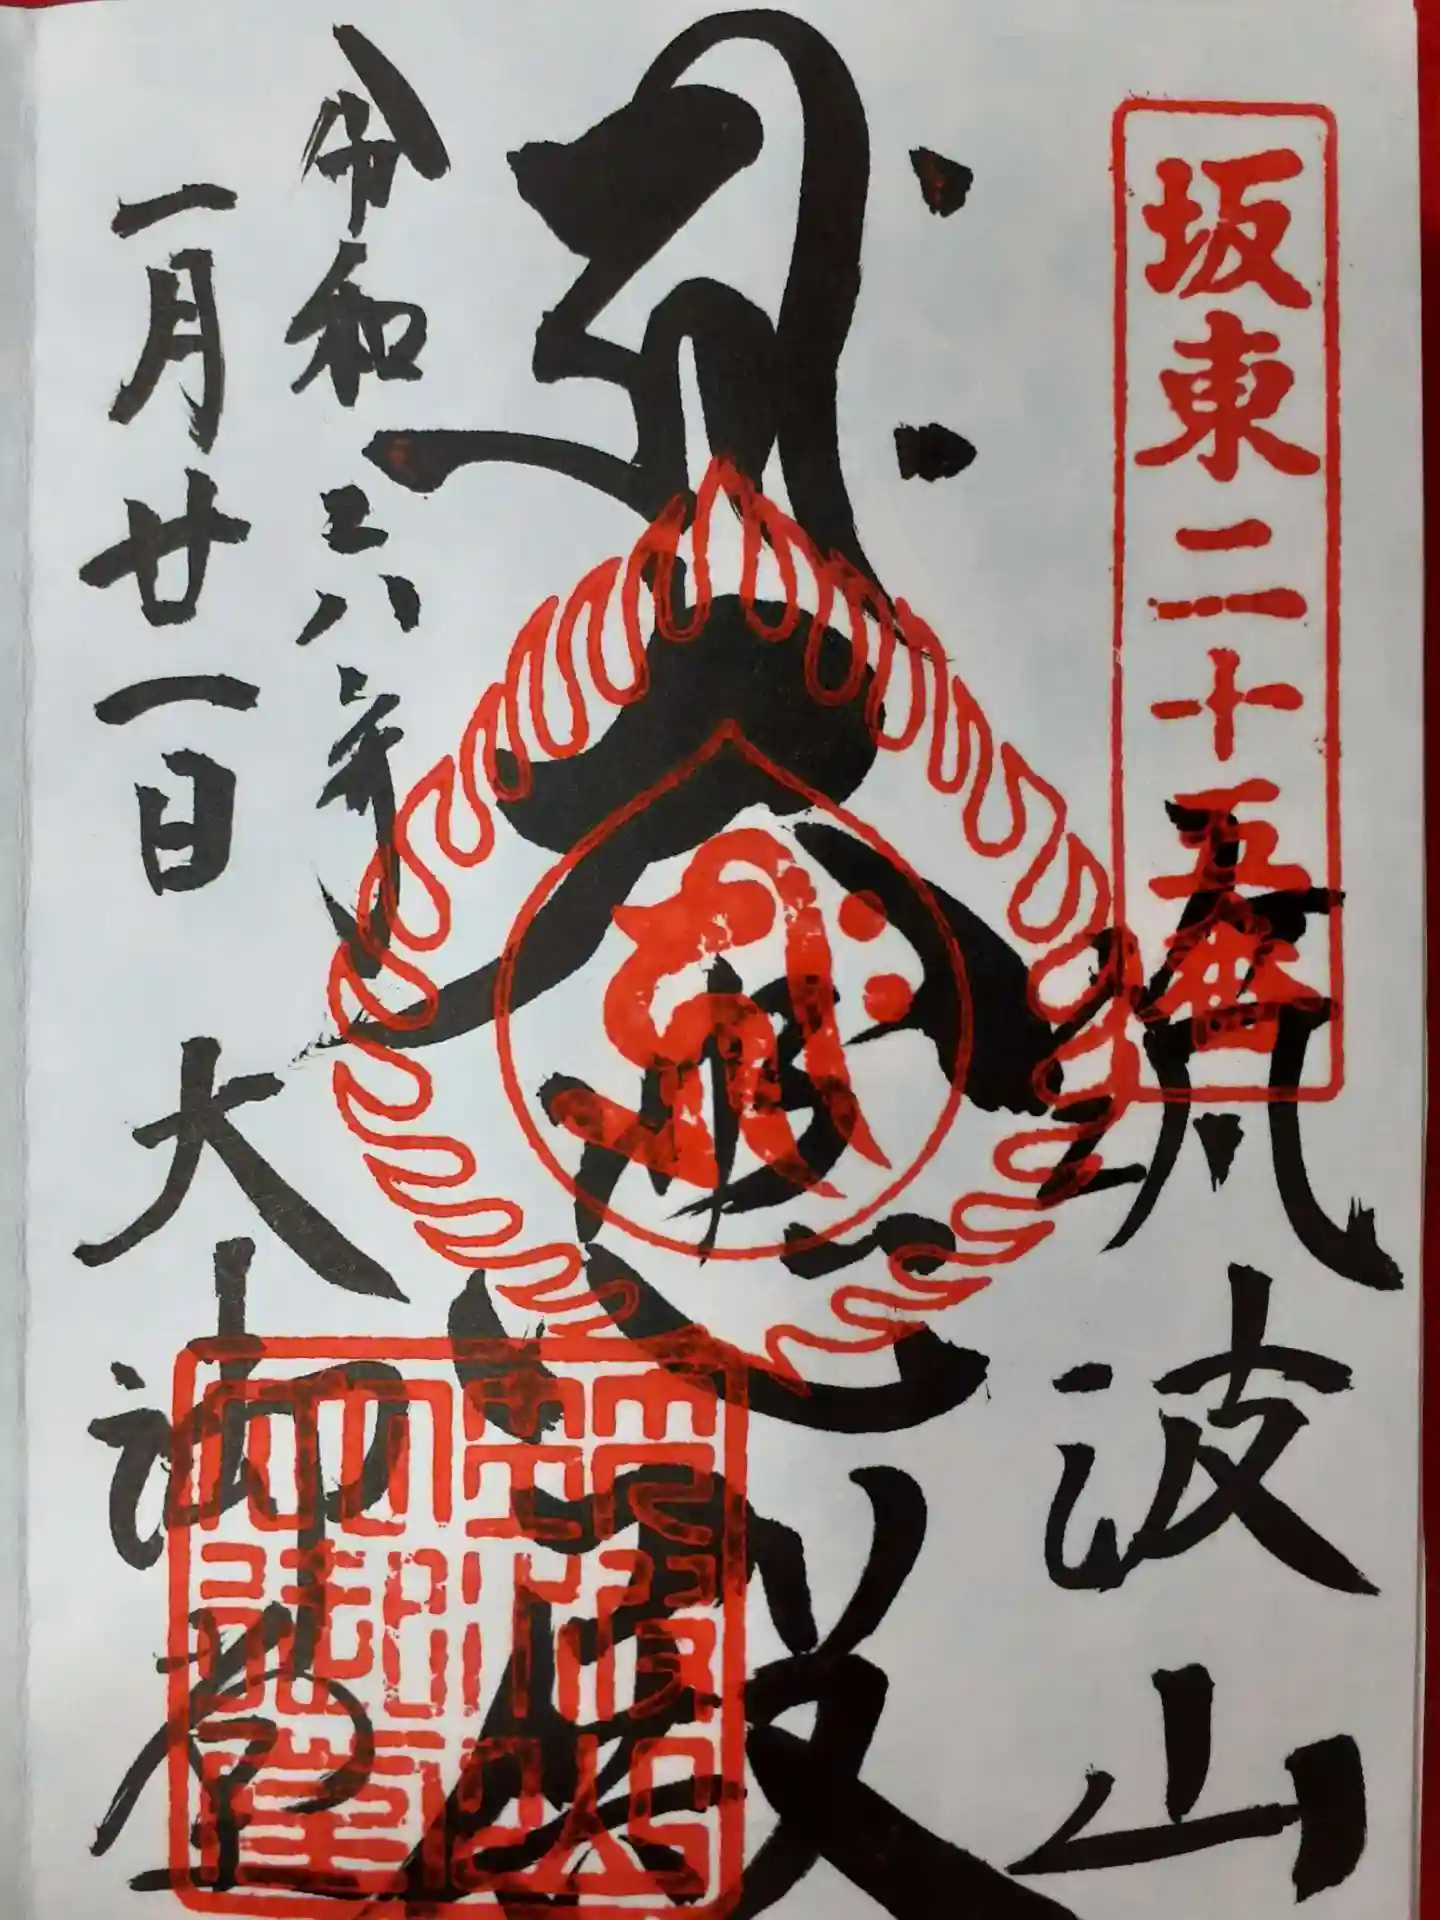 坂東二十五番
筑波山
大悲殿
令和六年
一月廿一日
大御堂
筑波山大御堂